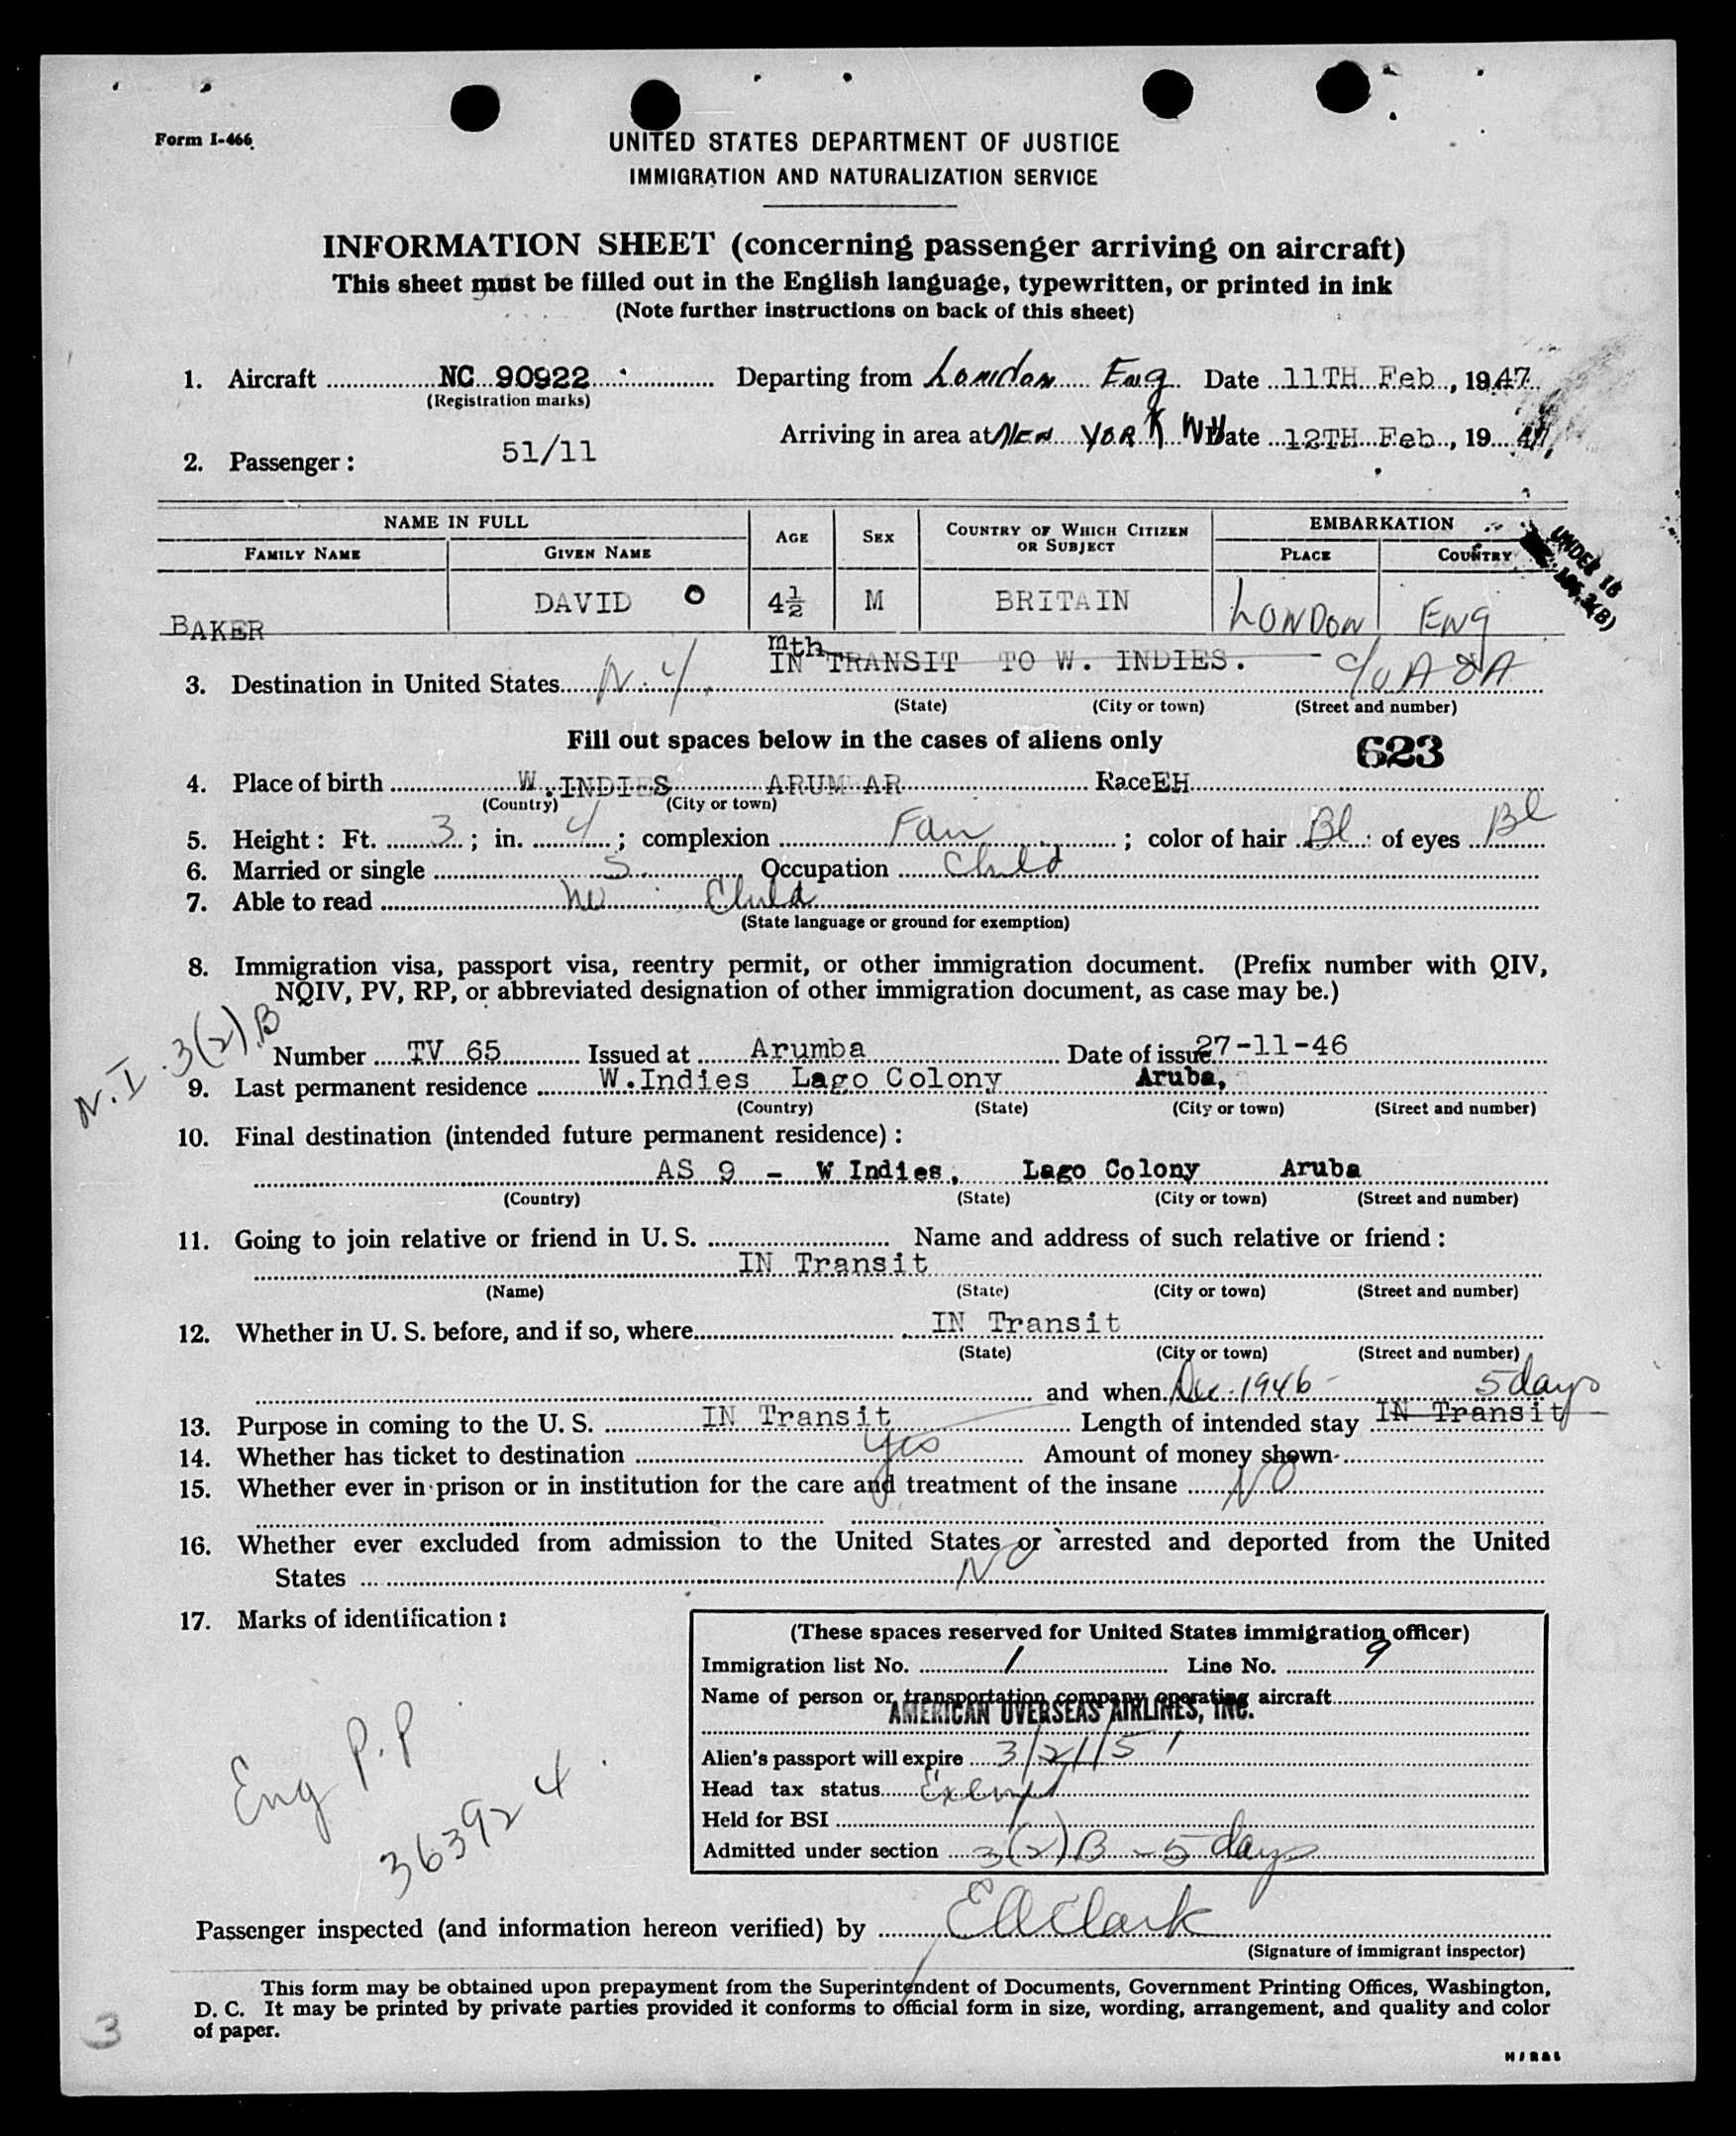 Form I-466
UNITED STATES DEPARTMENT OF JUSTICE
IMMIGRATION AND NATURALIZATION SERVICE
INFORMATION SHEET (concerning passenger arriving on aircraft)
This sheet must be filled out in the English language, typewritten, or printed in ink
(Note further instructions on back of this sheet)
1. Aircraft NC 90922 Departing from London Eng Date 11TH Feb, 1947
(Registration marks)
Arriving in area at New YORK NY Date 12TH Feb, 1947
2. Passenger: 51/11
NAME IN FULL AGE SEX COUNTRY OF WHICH CITIZEN OR SUBJECT EMBARKATION
FAMILY NAME GIVEN NAME PLACE COUNTRY
UNDER 16
BAKER DAVID O 4½ mth M BRITAIN LONDON ENg
IN TRANSIT TO W. INDIES.
3. Destination in United States N.Y. c/o A O A
(State) (City or town) (Street and number)
Fill out spaces below in the cases of aliens only 623
4. Place of birth W. INDIES ARUM AR Race EH
(Country) (City or town)
5. Height: Ft. 3; in. 4; complexion Fair; color of hair Bl of eyes Bl
6. Married or single S Occupation Child
7. Able to read No Child
(State language or ground for exemption)
8. Immigration visa, passport visa, reentry permit, or other immigration document. (Prefix number with QIV,
NQIV, PV, RP, or abbreviated designation of other immigration document, as case may be.)
N.I. 3(2).B
Number TV 65 Issued at Arumba Date of issue 27-11-46
9. Last permanent residence W.Indies Lago Colony Aruba,
(Country) (State) (City or town) (Street and number)
10. Final destination (intended future permanent residence):
AS 9 - W Indies, Lago Colony Aruba
(Country) (State) (City or town) (Street and number)
11. Going to join relative or friend in U. S. Name and address of such relative or friend:
IN Transit
(Name) (State) (City or town) (Street and number)
12. Whether in U. S. before, and if so, where IN Transit
(State) (City or town) (Street and number)
and when Dec. 1946 - 5 days
13. Purpose in coming to the U. S. IN Transit Length of intended stay IN Transit
14. Whether has ticket to destination yes Amount of money shown
15. Whether ever in prison or in institution for the care and treatment of the insane NO
16. Whether ever excluded from admission to the United States or arrested and deported from the United
States NO
17. Marks of identification:
(These spaces reserved for United States immigration officer)
Immigration list No. 1 Line No. 9
Name of person or transportation company operating aircraft
AMERICAN OVERSEAS AIRLINES, INC.
Alien's passport will expire 3/21/51
Head tax status Exempt
Held for BSI
Admitted under section 3(2)B - 5 days
Eng P.P.
363924.
Passenger inspected (and information hereon verified) by E A Clark
(Signature of immigrant inspector)
This form may be obtained upon prepayment from the Superintendent of Documents, Government Printing Offices, Washington,
D. C. It may be printed by private parties provided it conforms to official form in size, wording, arrangement, and quality and color
of paper.
3